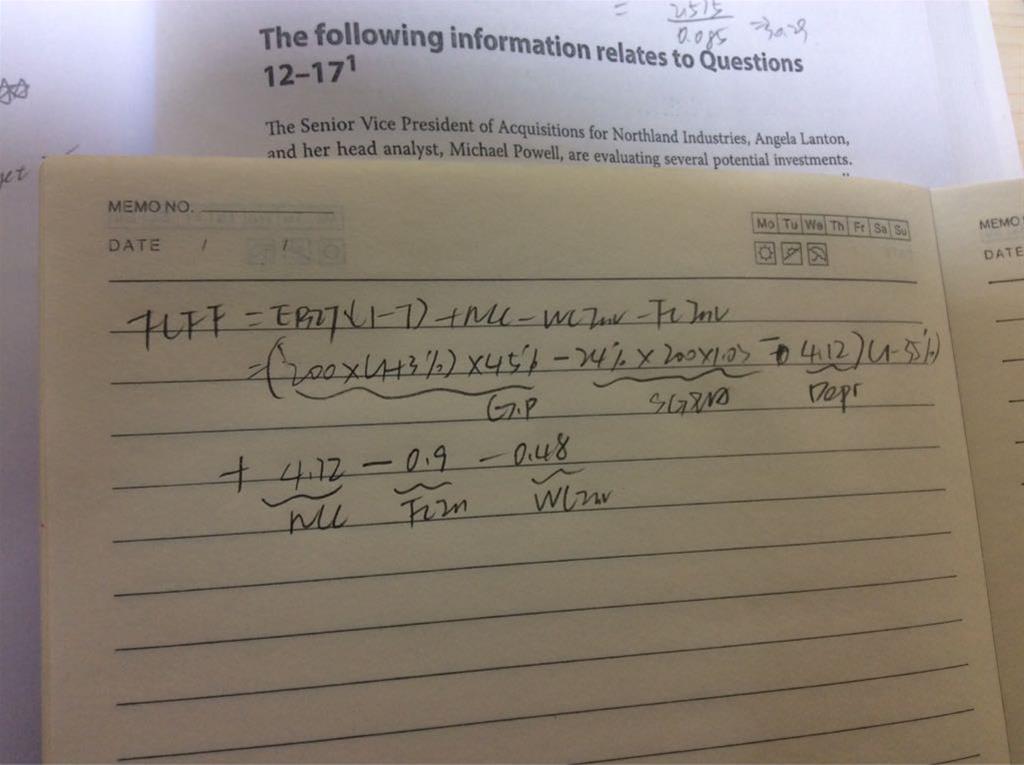 = 2.515 / 0.085 ⇒ 30.29
The following information relates to Questions
12–17¹
The Senior Vice President of Acquisitions for Northland Industries, Angela Lanton,
and her head analyst, Michael Powell, are evaluating several potential investments.
MEMO NO.
Mo Tu We Th Fr Sa Su
DATE / /
MEMO
DATE
FCFF = EBIT(1-T) + NCC - WCInv - FCInv
= (200×(1+3%)×45% - 24%×200×1.03 - 4.12)(1-35%)
G.P SG&A Depr
+ 4.12 - 0.9 - 0.48
NCC FCIn WCInv